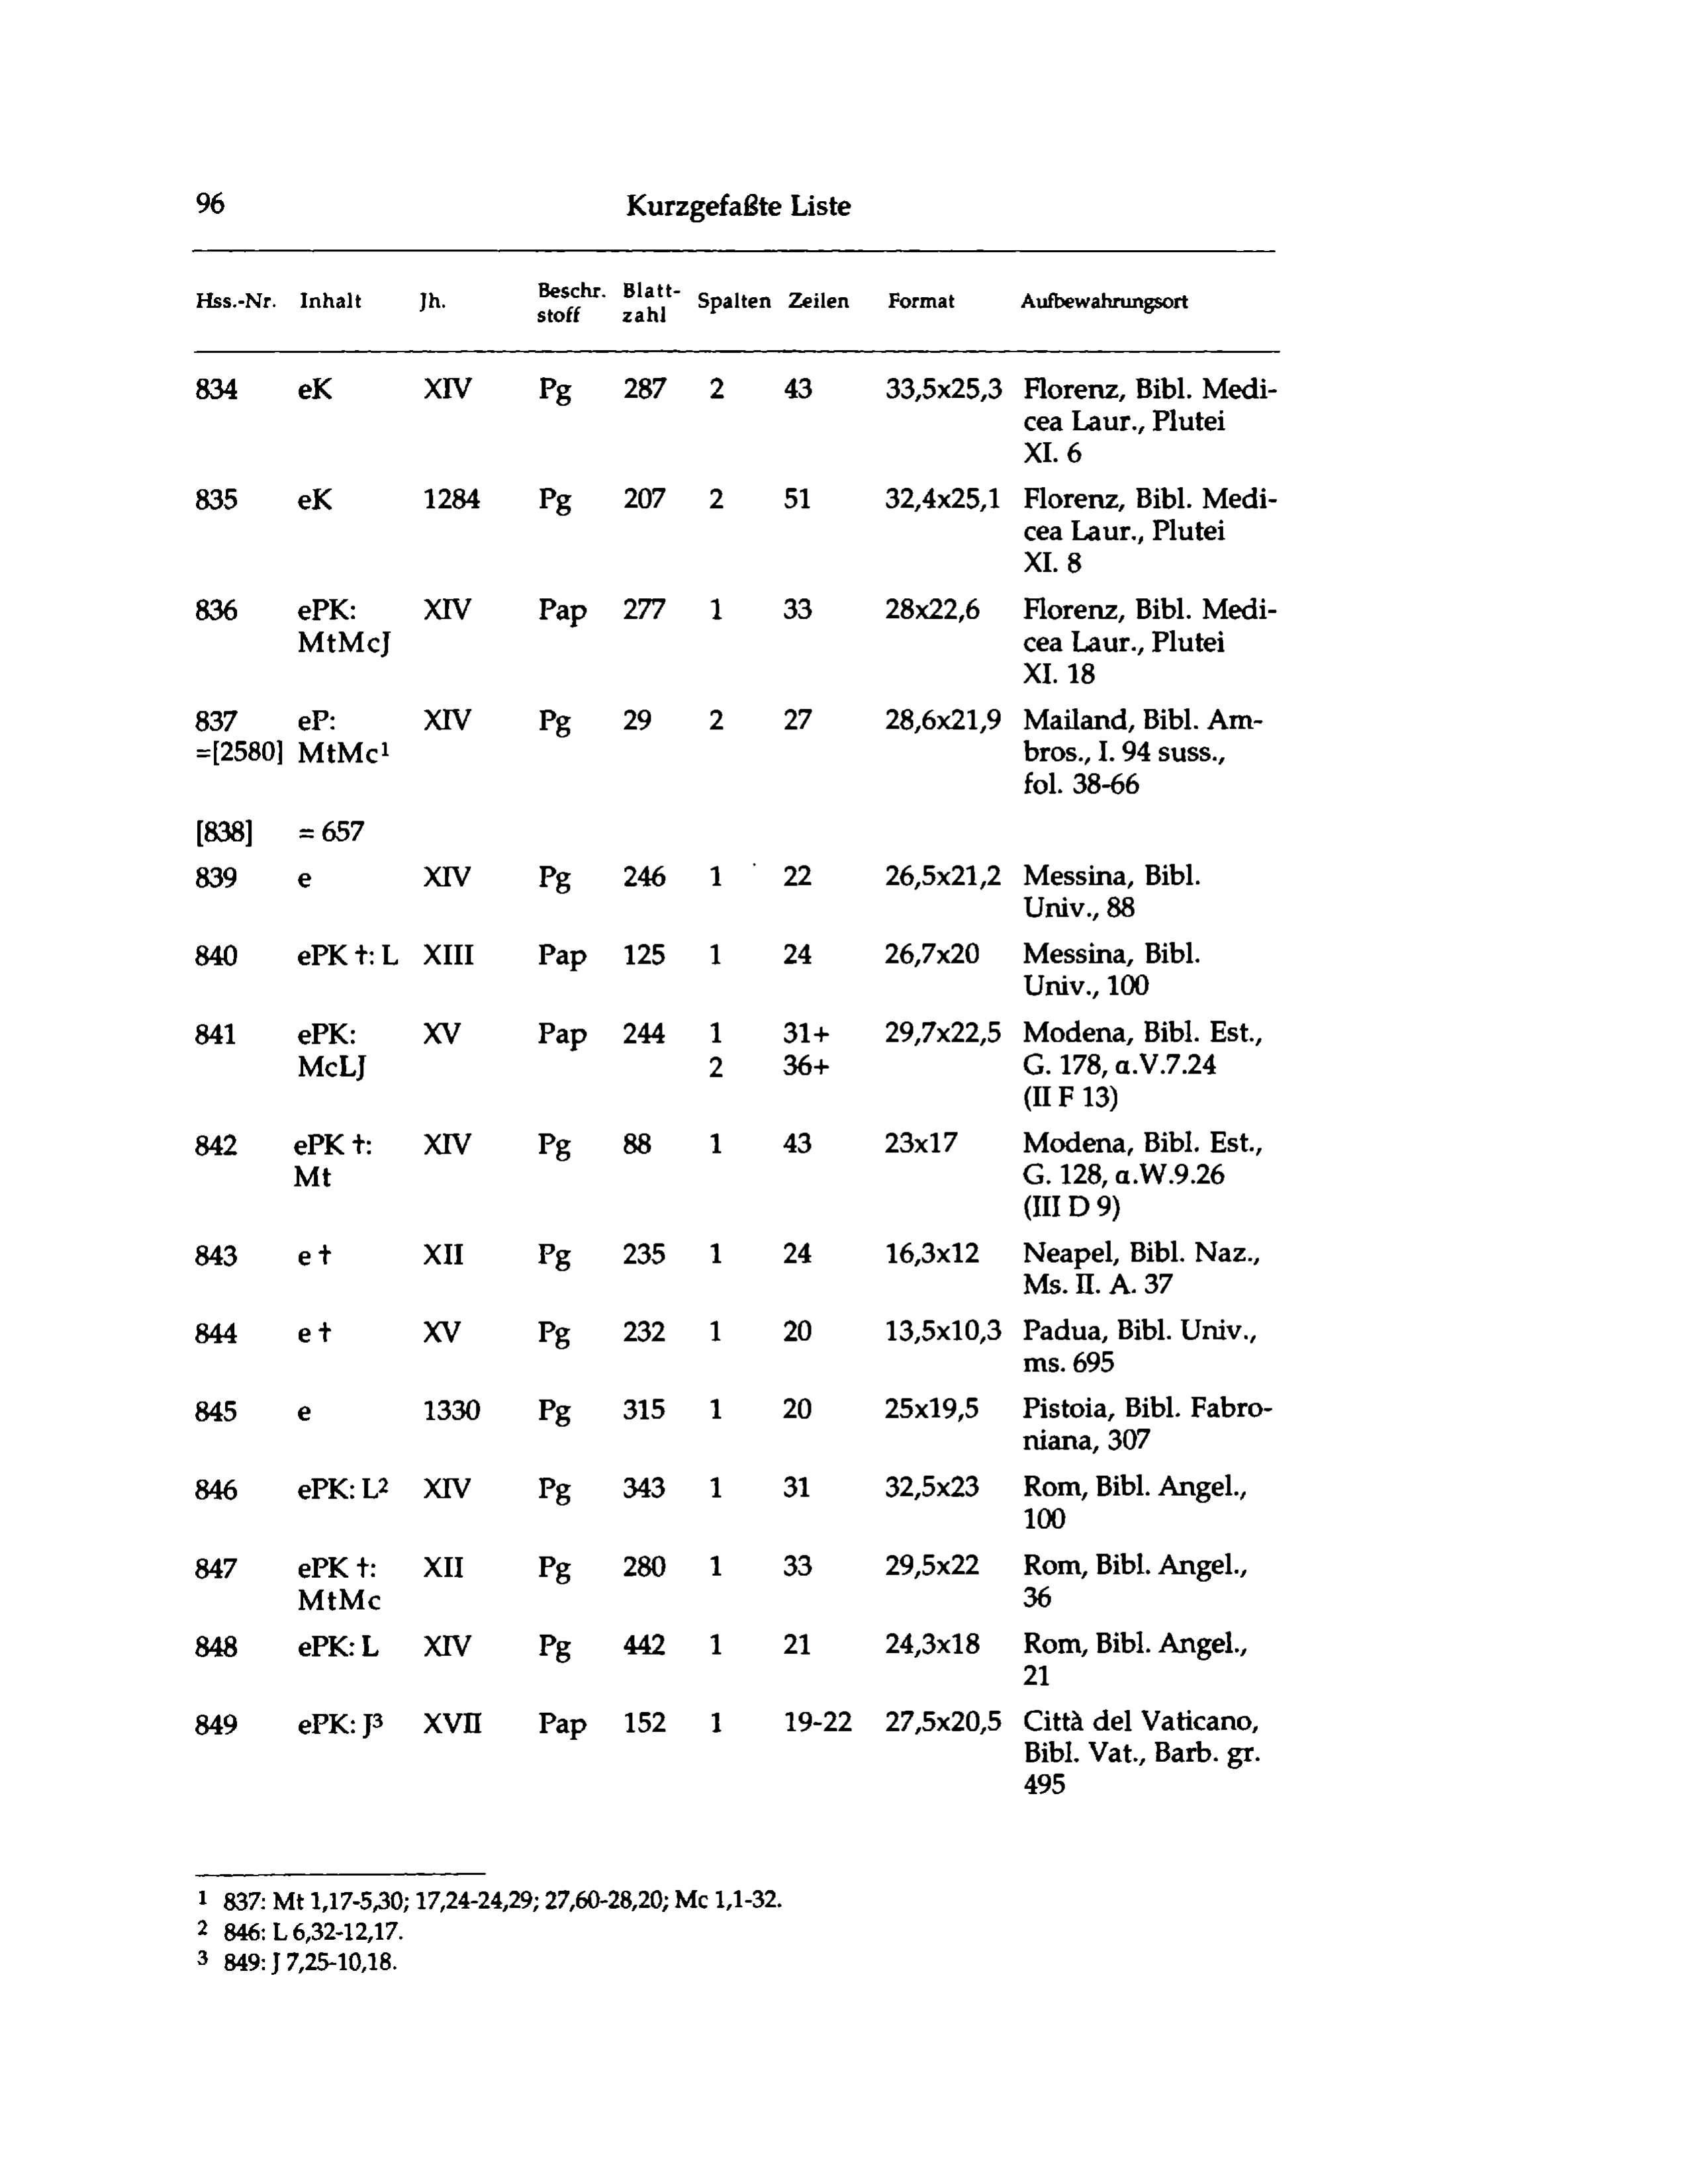 96 Kurzgefaßte Liste
Hss.-Nr. Inhalt Jh. Beschr. Blatt- Spalten Zeilen Format Aufbewahrungsort
stoff zahl
834 eK XIV Pg 287 2 43 33,5x25,3 Florenz, Bibl. Medi-
cea Laur., Plutei
XI. 6
835 eK 1284 Pg 207 2 51 32,4x25,1 Florenz, Bibl. Medi-
cea Laur., Plutei
XI. 8
836 ePK: XIV Pap 277 1 33 28x22,6 Florenz, Bibl. Medi-
MtMcJ cea Laur., Plutei
XI. 18
837 eP: XIV Pg 29 2 27 28,6x21,9 Mailand, Bibl. Am-
=[2580] MtMc¹ bros., I. 94 suss.,
fol. 38-66
[838] = 657
839 e XIV Pg 246 1 22 26,5x21,2 Messina, Bibl.
Univ., 88
840 ePK †: L XIII Pap 125 1 24 26,7x20 Messina, Bibl.
Univ., 100
841 ePK: XV Pap 244 1 31+ 29,7x22,5 Modena, Bibl. Est.,
McLJ 2 36+ G. 178, α.V.7.24
(II F 13)
842 ePK †: XIV Pg 88 1 43 23x17 Modena, Bibl. Est.,
Mt G. 128, α.W.9.26
(III D 9)
843 e † XII Pg 235 1 24 16,3x12 Neapel, Bibl. Naz.,
Ms. II. A. 37
844 e † XV Pg 232 1 20 13,5x10,3 Padua, Bibl. Univ.,
ms. 695
845 e 1330 Pg 315 1 20 25x19,5 Pistoia, Bibl. Fabro-
niana, 307
846 ePK: L² XIV Pg 343 1 31 32,5x23 Rom, Bibl. Angel.,
100
847 ePK †: XII Pg 280 1 33 29,5x22 Rom, Bibl. Angel.,
MtMc 36
848 ePK: L XIV Pg 442 1 21 24,3x18 Rom, Bibl. Angel.,
21
849 ePK: J³ XVII Pap 152 1 19-22 27,5x20,5 Città del Vaticano,
Bibl. Vat., Barb. gr.
495
1 837: Mt 1,17-5,30; 17,24-24,29; 27,60-28,20; Mc 1,1-32.
2 846: L 6,32-12,17.
3 849: J 7,25-10,18.